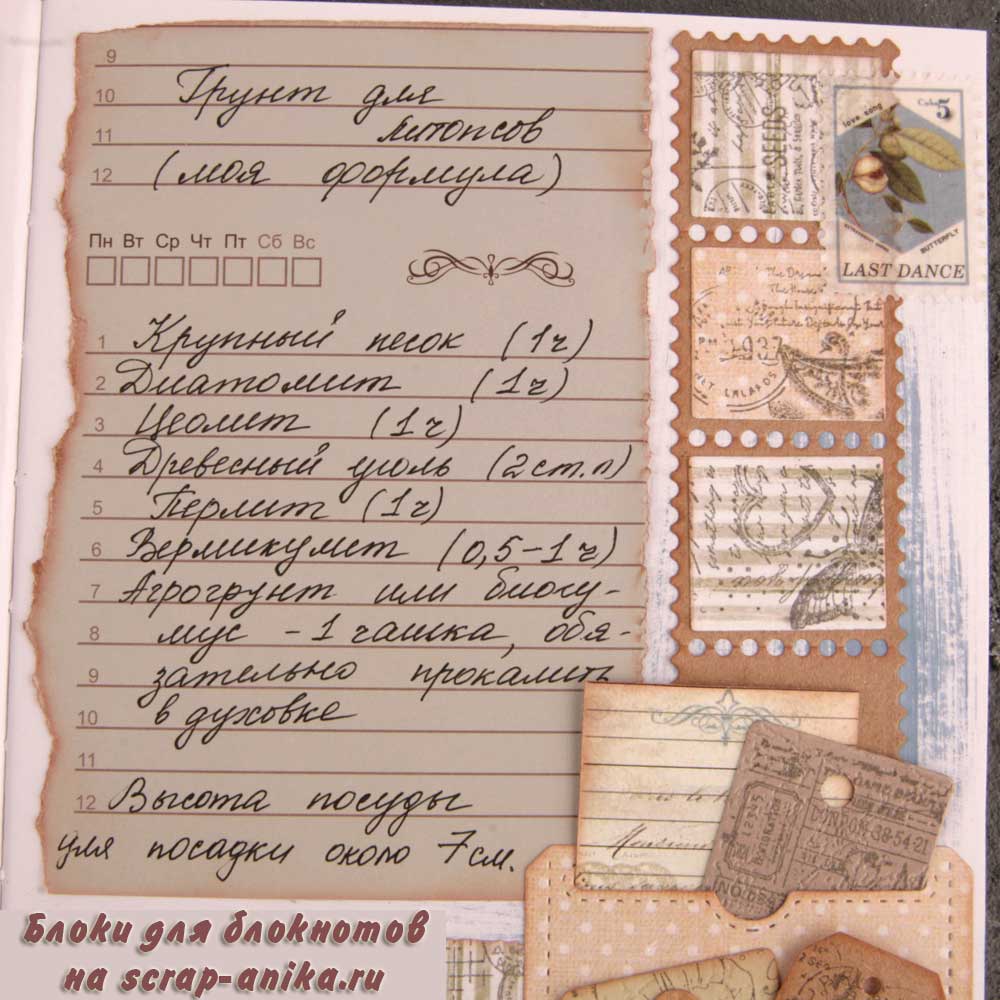 9
10 Грунт для
11 литопсов
12 (моя формула)
Пн Вт Ср Чт Пт Сб Вс
1 Крупный песок (1ч)
2 Диатомит (1ч)
3 Цеолит (1ч)
4 Древесный уголь (2ст.л)
5 Перлит (1ч)
6 Вермикулит (0,5-1ч)
7 Агрогрунт или биогу-
8 мус - 1 чашка, обя-
9 зательно прокалить
10 в духовке
11
12 Высота посуды
для посадки около 7см.
SEEDS
love song
5
BUTTERFLY
LAST DANCE
1937
LONDON-38-54-21
Блоки для блокнотов
на scrap-anika.ru